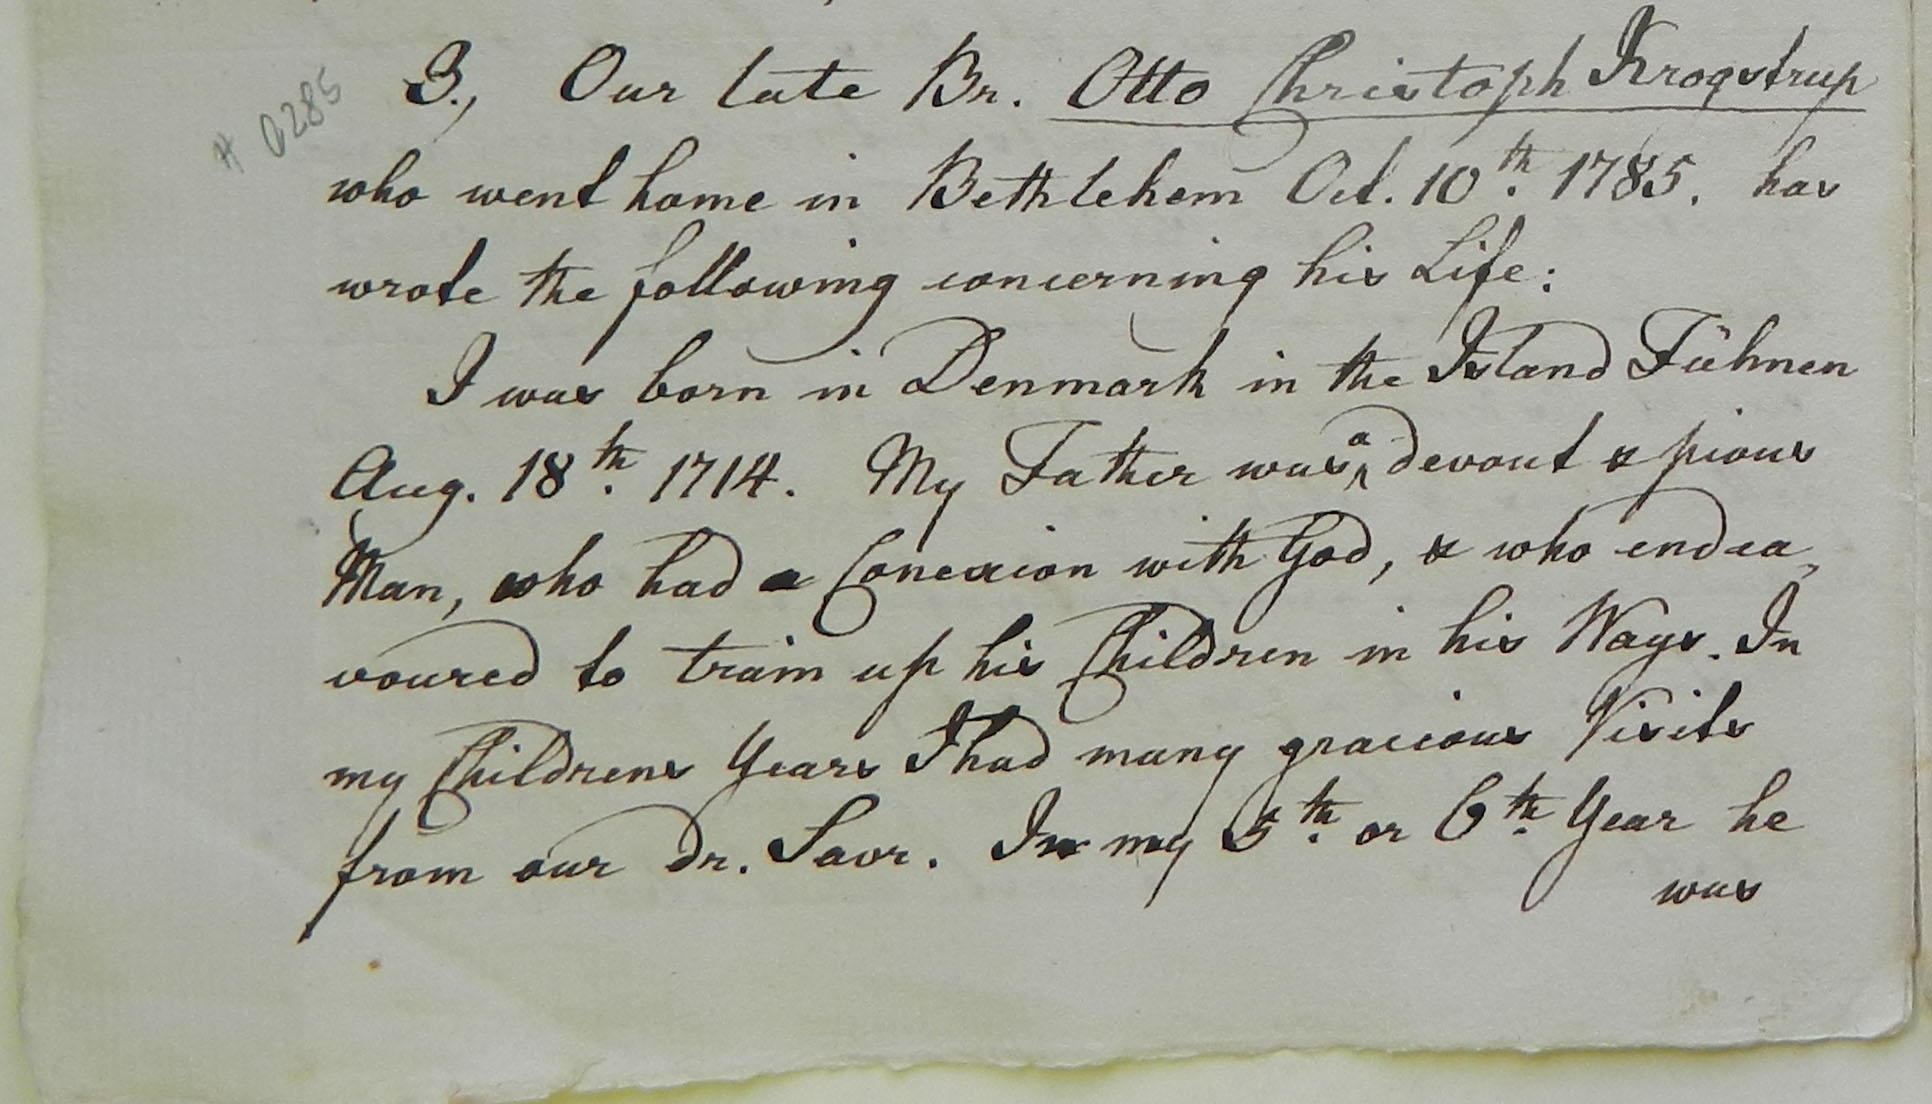 # 0285
3., Our late Br. Otto Christoph Krogstrup
who went home in Bethlehem Oct. 10th. 1785. has
wrote the following concerning his Life:
I was born in Denmark in the Island Fühnen
Aug. 18th. 1714. My Father was a devout & pious
Man, who had a Conexion with God, & who endea,
voured to train up his Children in his Ways. In
my Childrens Years I had many gracious Visits
from our dr. Savr. In my 5th. or 6th. Year he
was